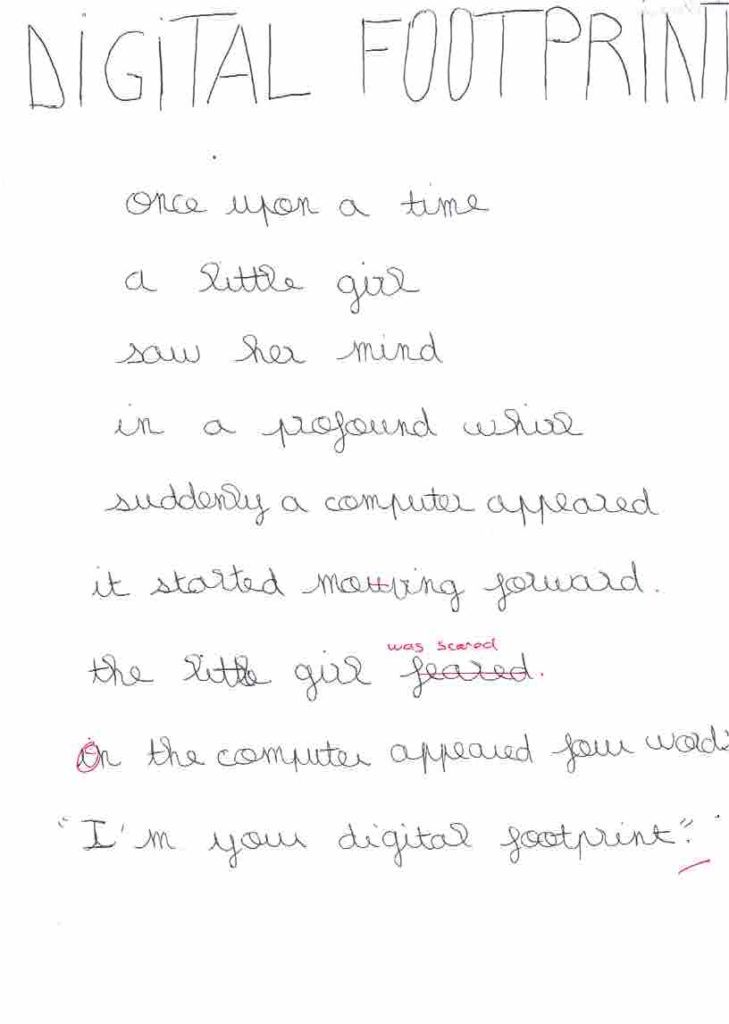 DIGITAL FOOTPRINT
once upon a time
a little girl
saw her mind
in a profound whirl
suddenly a computer appeared
it started moving forward.
was scared
the little girl feared.
On the computer appeared four words
"I'm your digital footprint".